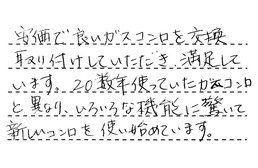 安価で良いガスコンロを交換
取り付けしていただき満足して
います。20数年使っていたガスコンロ
と異なり、いろいろな機能に驚いて
新しいコンロを使い始めています。